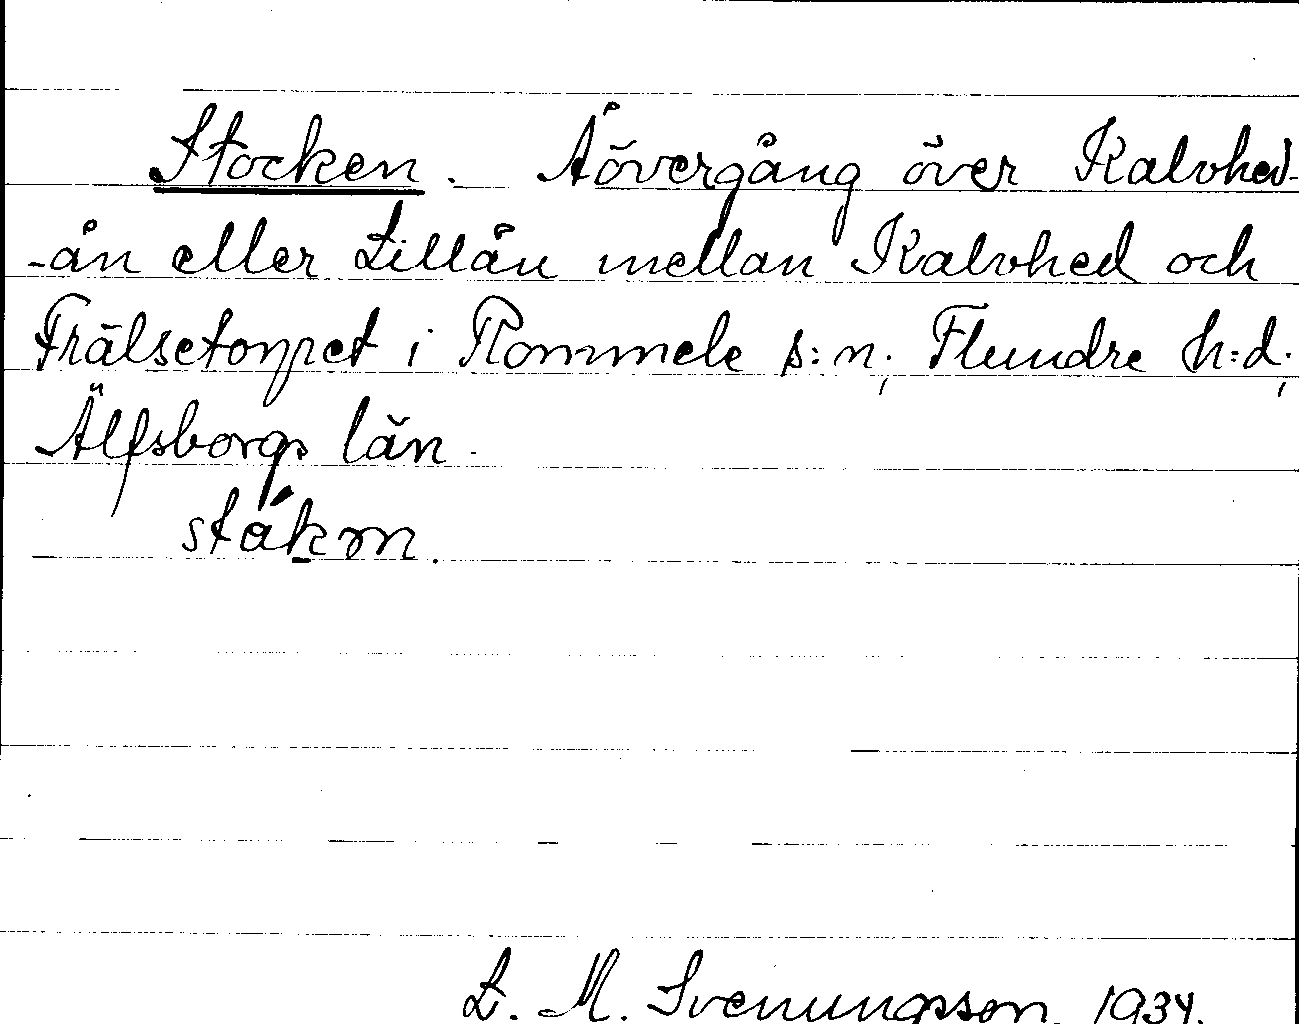 Stocken. Åövergång över Kalvhed-
-ån eller Lillån mellan Kalvhed och
Frälsetorpet i Rommele s:n, Flundre h:d,
Älfsborgs län.
ståkm.
L. M. Svenungsson. 1934.